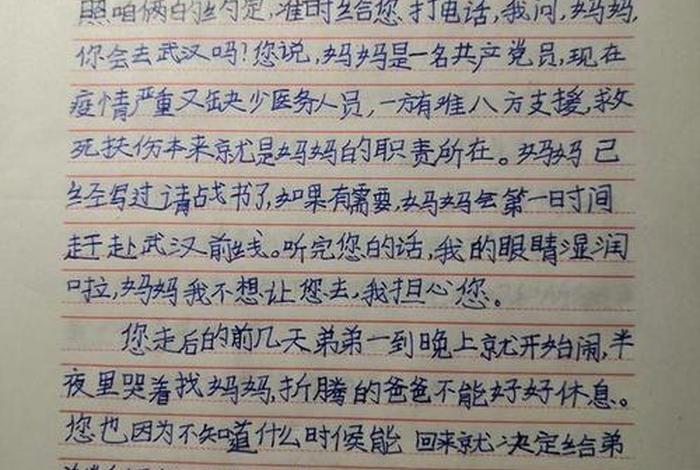 照咱俩的约定,准时给您打电话,我问,妈妈,
你会去武汉吗?您说,妈妈是一名共产党员,现在
疫情严重又缺少医务人员,一方有难八方支援,救
死扶伤本来就是妈妈的职责所在。妈妈已
经写过请战书了,如果有需要,妈妈会第一日时间
赶赴武汉前线。听完您的话,我的眼睛湿润
啦,妈妈我不想让您去,我担心您。
您走后的前几天弟弟一到晚上就开始闹,半
夜里哭着找妈妈,折腾的爸爸不能好好休息。
您也因为不知道什么时候能 回来就决定给弟